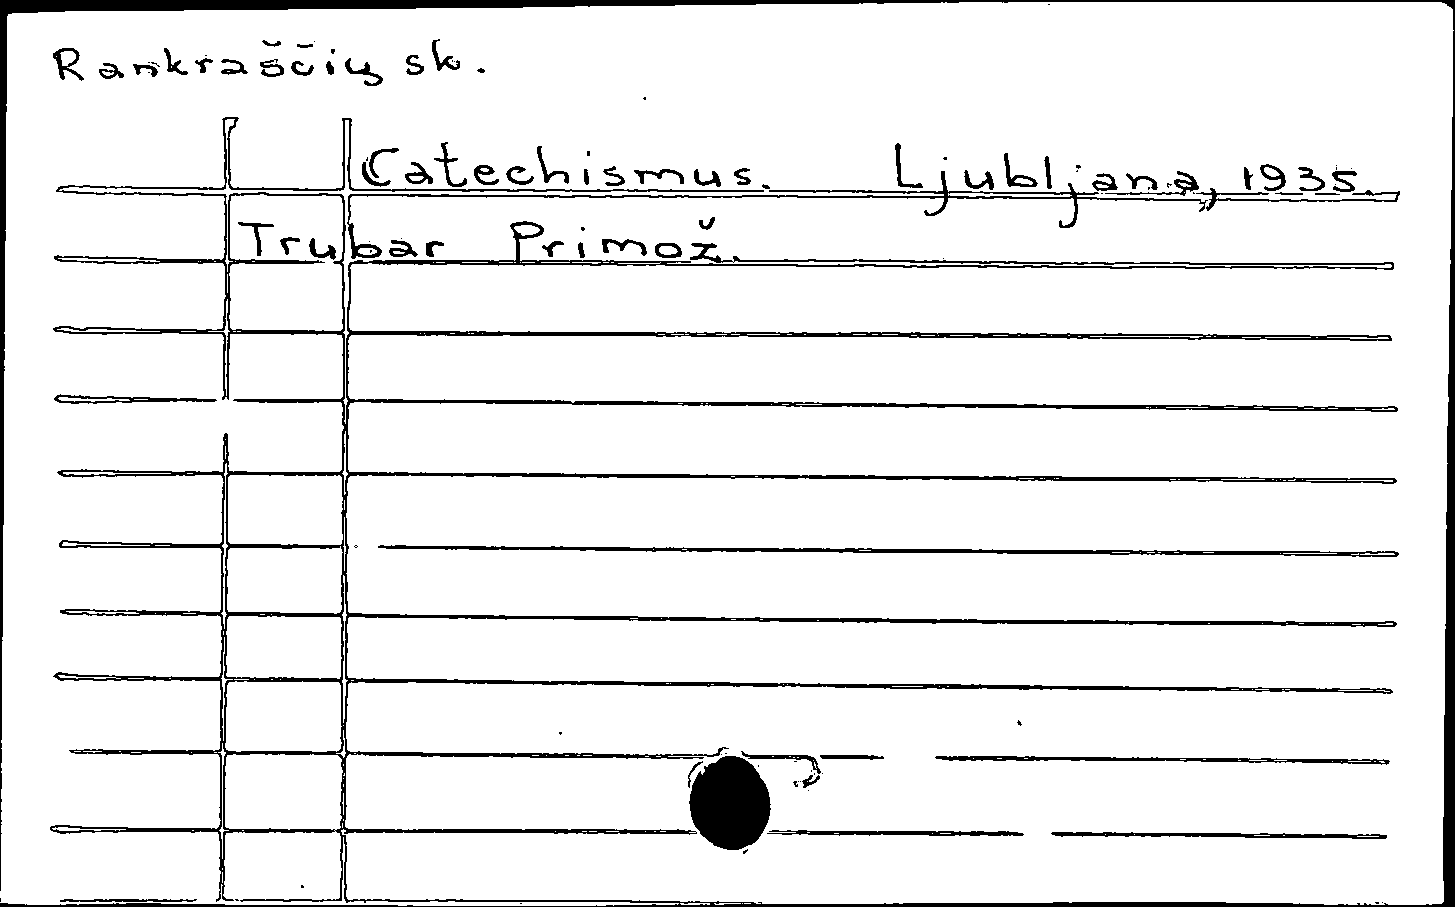 Rankraščių sk.
Catechismus. Ljubljana, 1935.
Trubar Primož.